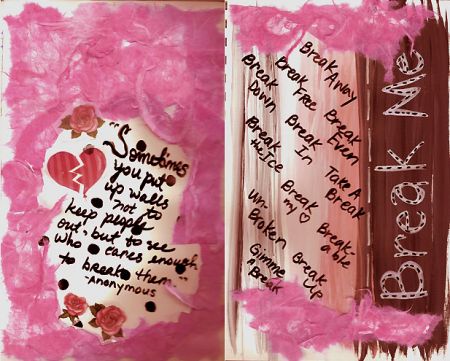 "Sometimes
you put
up walls
not to
keep people
out, but to see
who cares enough
to break them."
-Anonymous
Break Away
Break
Down
Break
Free
Break
Even
Break
the Ice
Break
In
Take A
Break
Break
my ♡
Un-
Broken
Break-
able
Gimme
a Break
Break
Up
Break Me